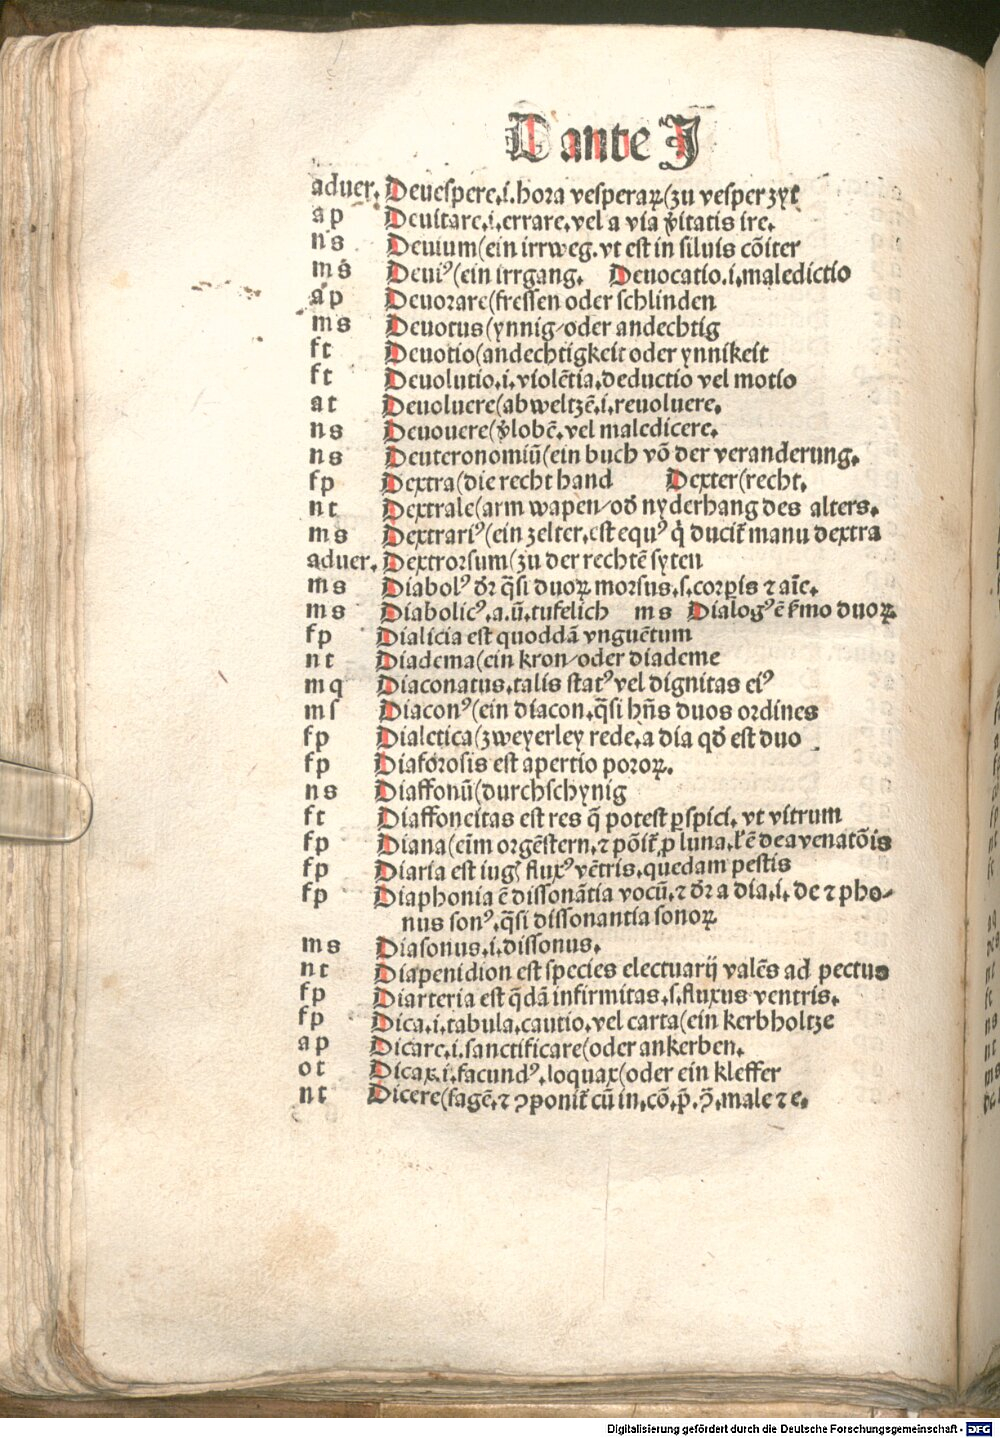 Dante J
aduer. Deuespere.i.hora vesperaꝝ(zu vesper zyt
a p Deuitare.i.errare.vel a via v̾itatis ire.
n s Deuium(ein irrweg.vt est in siluis cõiter
m s Deuiꝰ(ein irrgang. Deuocatio.i.maledictio
a p Deuorare(fressen oder schlinden
m s Deuotus(ynnig/oder andechtig
f t Deuotio(andechtigkeit oder ynnikeit
f t Deuolutio.i.violẽtia.deductio vel motio
a t Deuoluere(abweltzẽ.i.reuoluere.
n s Deuouere(v̾lobẽ.vel maledicere.
n s Deuteronomiũ(ein buch võ der veranderung.
f p Dextra(die recht hand Dexter(recht.
n t Dextrale(arm wapen/od̾ nyderhang des alters.
m s Dextrariꝰ(ein zelter.est equꝰ q̇ ducit᷑ manu dextra
aduer. Dextrorsum(zu der rechtẽ syten
m s Diabolꝰ dr̃ q̃si duoꝝ morsus.s.corꝑis ⁊ aĩe.
m s Diabolicꝰ.a.ũ.tufelich m s Dialogꝰ ẽ s̃mo duoꝝ
f p Dialicia est quoddã vnguẽtum
n t Diadema(ein kron/oder diademe
m q Diaconatus.talis statꝰ vel dignitas eiꝰ
m s Diaconꝰ(ein diacon.q̃si hñs duos ordines
f p Dialetica(zweyerley rede.a dia qd̾ est duo
f p Diaforosis est apertio poroꝝ.
n s Diaffonũ(durchschynig
f t Diaffoneitas est res q̃ potest ꝑspici. vt vitrum
f p Diana(eim orgẽstern.⁊ põit᷑ ꝓ luna.ł ẽ dea venatõis
f p Diaria est iug̾ fluxꝰ vẽtris.quedam pestis
f p Diaphonia ẽ dissonãtia vocũ.⁊ dr̃ a dia.i.de ⁊ pho-
nus sonꝰ.q̃si dissonantia sonoꝝ
m s Diasonus.i.dissonus.
n t Diapenidion est species electuarij valẽs ad pectus
f p Diarteria est q̃dã infirmitas.s.fluxus ventris.
f p Dica.i.tabula.cautio.vel carta(ein kerbholtze
a p Dicare.i.sanctificare(oder ankerben.
o t Dicax.i.facundꝰ.loquax(oder ein kleffer
n t Dicere(sagẽ.⁊ ꝯponit᷑ cũ in.cõ.p̃.ꝯ̃.male ⁊ e.
Digitalisierung gefördert durch die Deutsche Forschungsgemeinschaft - DFG